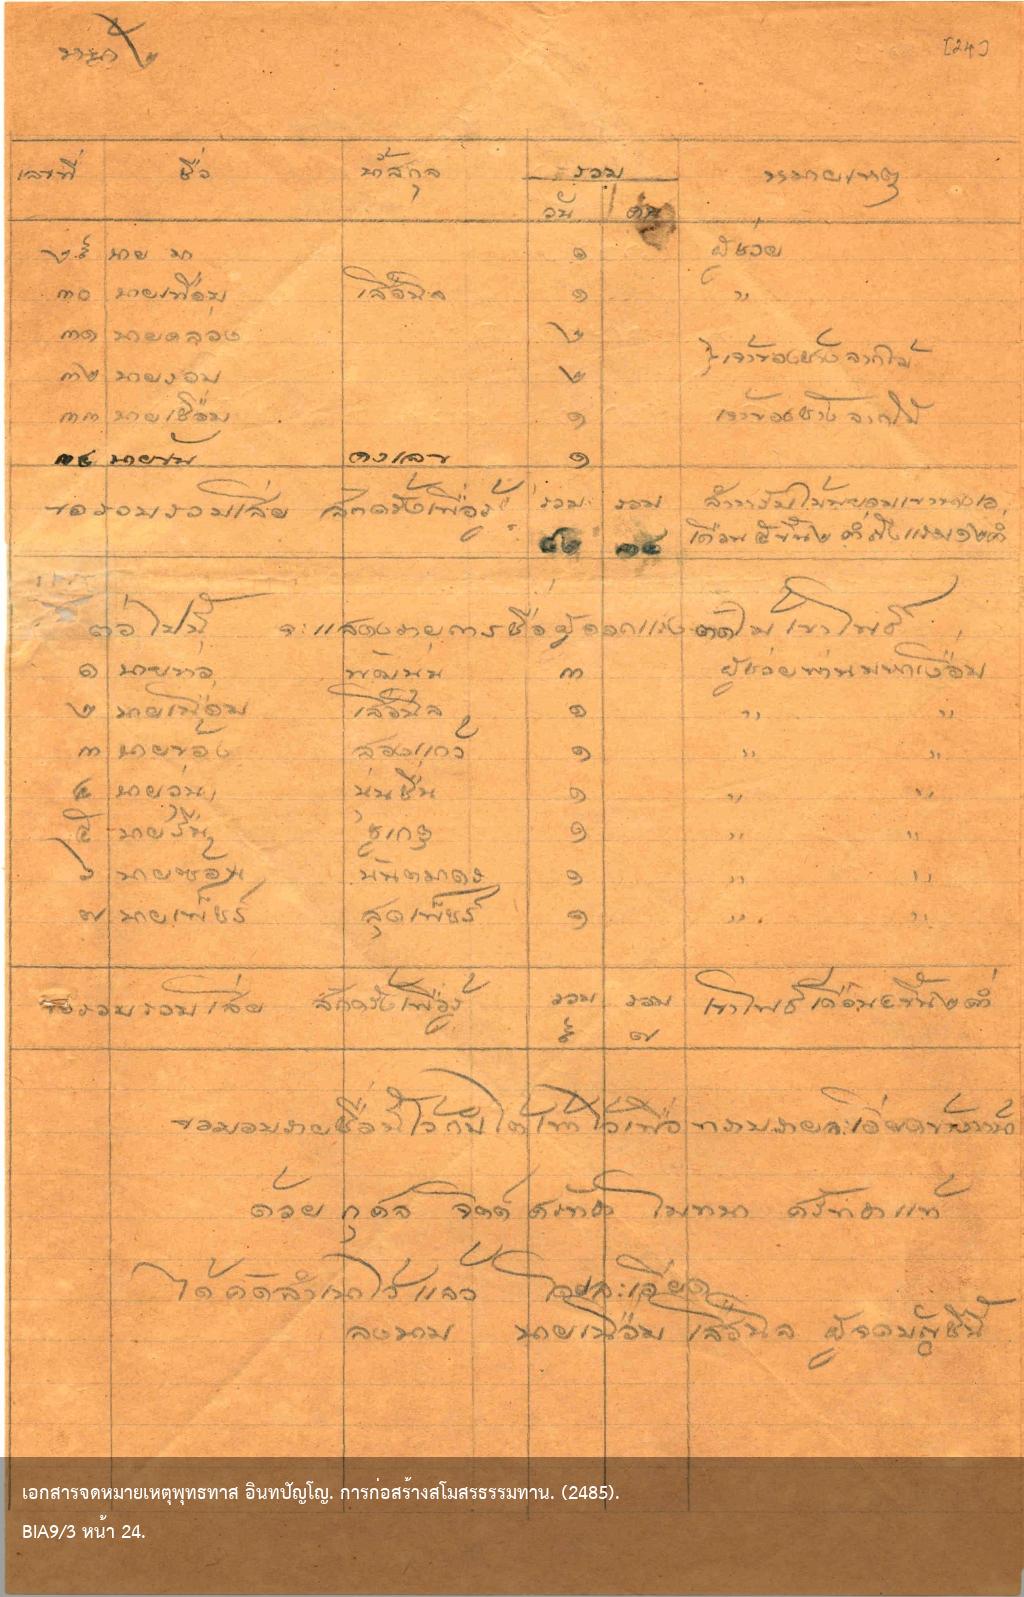 น่าที่ ๒ [24]
เลขที่ ชื่อ นัสกุล รวม หมายเหตุ
วัน คน
๒๙ นาย นา ๑ ผู้ช่วย
๓๐ นายเพื่อม เลื่อนิล ๑ ,,
๓๑ นายคล่อง ๒
๓๒ นายรอบ ๒ เจ้าของช้างลากไม้
๓๓ นายเชื่อม ๑ เจ้าของช้างลากไม้
๓๔ นายขำ คงเลข ๑
ขอรวมรวมเสีย สักครั้งเพื่อรู้ รวม รวม
๓๔ เดือน ๕ ขึ้น ๒ ค่ำ ถึงแรม ๑๒ ค่ำ
ต่อไปนี้ จะแสดงรายการชื่อผู้ออกแรงตัดไม้เขาโพธิ์
๑ นายทอ พัฒน่ม ๓ ผู้ช่วยท่านมหาเงื่อม
๒ นายเพื่อม เลื่อนิล ๑ ,, ,,
๓ นายของ สองแก้ว ๑ ,, ,,
๔ นายอ่ำ นุ่นชื่น ๑ ,, ,,
๕ นายริน ชูเกตุ ๑ ,, ,,
๖ นายซ้อน นันตมาตร ๑ ,, ,,
๗ นายเพ็ชร์ สุดเพ็ชร์ ๑ ,, ,,
ขอรวมรวมเสีย สักครั้งเพื่อรู้ รวม รวม เขาโพธิ์เดือน ๕ ขึ้น ๒ ค่ำ
๙ ๗
ขอมอบรายชื่อนี้ไว้กับใต้เท้าไว้เพื่อทราบรายละเอียด
ด้วย กุศล จิตต์ ศรัทธา ศรัทธาแท้
ได้คัดสำเนาไว้แล้ว โดยละเอียด
ลงนาม นายเพื่อม เลื่อนิล ผู้จดบัญชีนี้
เอกสารจดหมายเหตุพุทธทาส อินทปัญโญ. การก่อสร้างสโมสรธรรมทาน. (2485).
BIA9/3 หน้า 24.